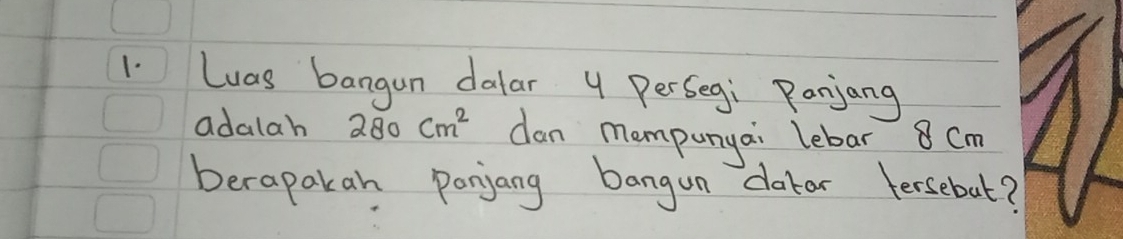 1. Luas bangun datar 4 Persegi Panjang
adalah 280 cm² dan mempunyai lebar 8 cm
berapakah panjang bangun datar tersebut?